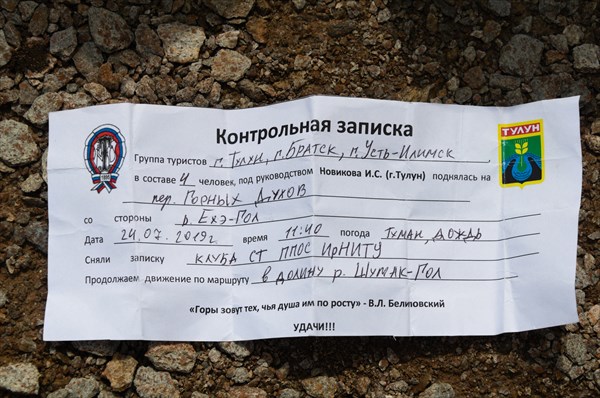 Контрольная записка
ТУЛУН
Группа туристов г. Тулун, г. Братск, г. Усть-Илимск
в составе 4 человек, под руководством Новикова И.С. (г.Тулун) поднялась на
пер. Горных Духов
со стороны р. Ехэ-Гол
Дата 24.07.2019г. время 11:40 погода Туман, дождь
Сняли записку клуба СТ ППОС ИрНИТУ
Продолжаем движение по маршруту в долину р. Шумак-Гол
«Горы зовут тех, чья душа им по росту» - В.Л. Белиловский
УДАЧИ!!!